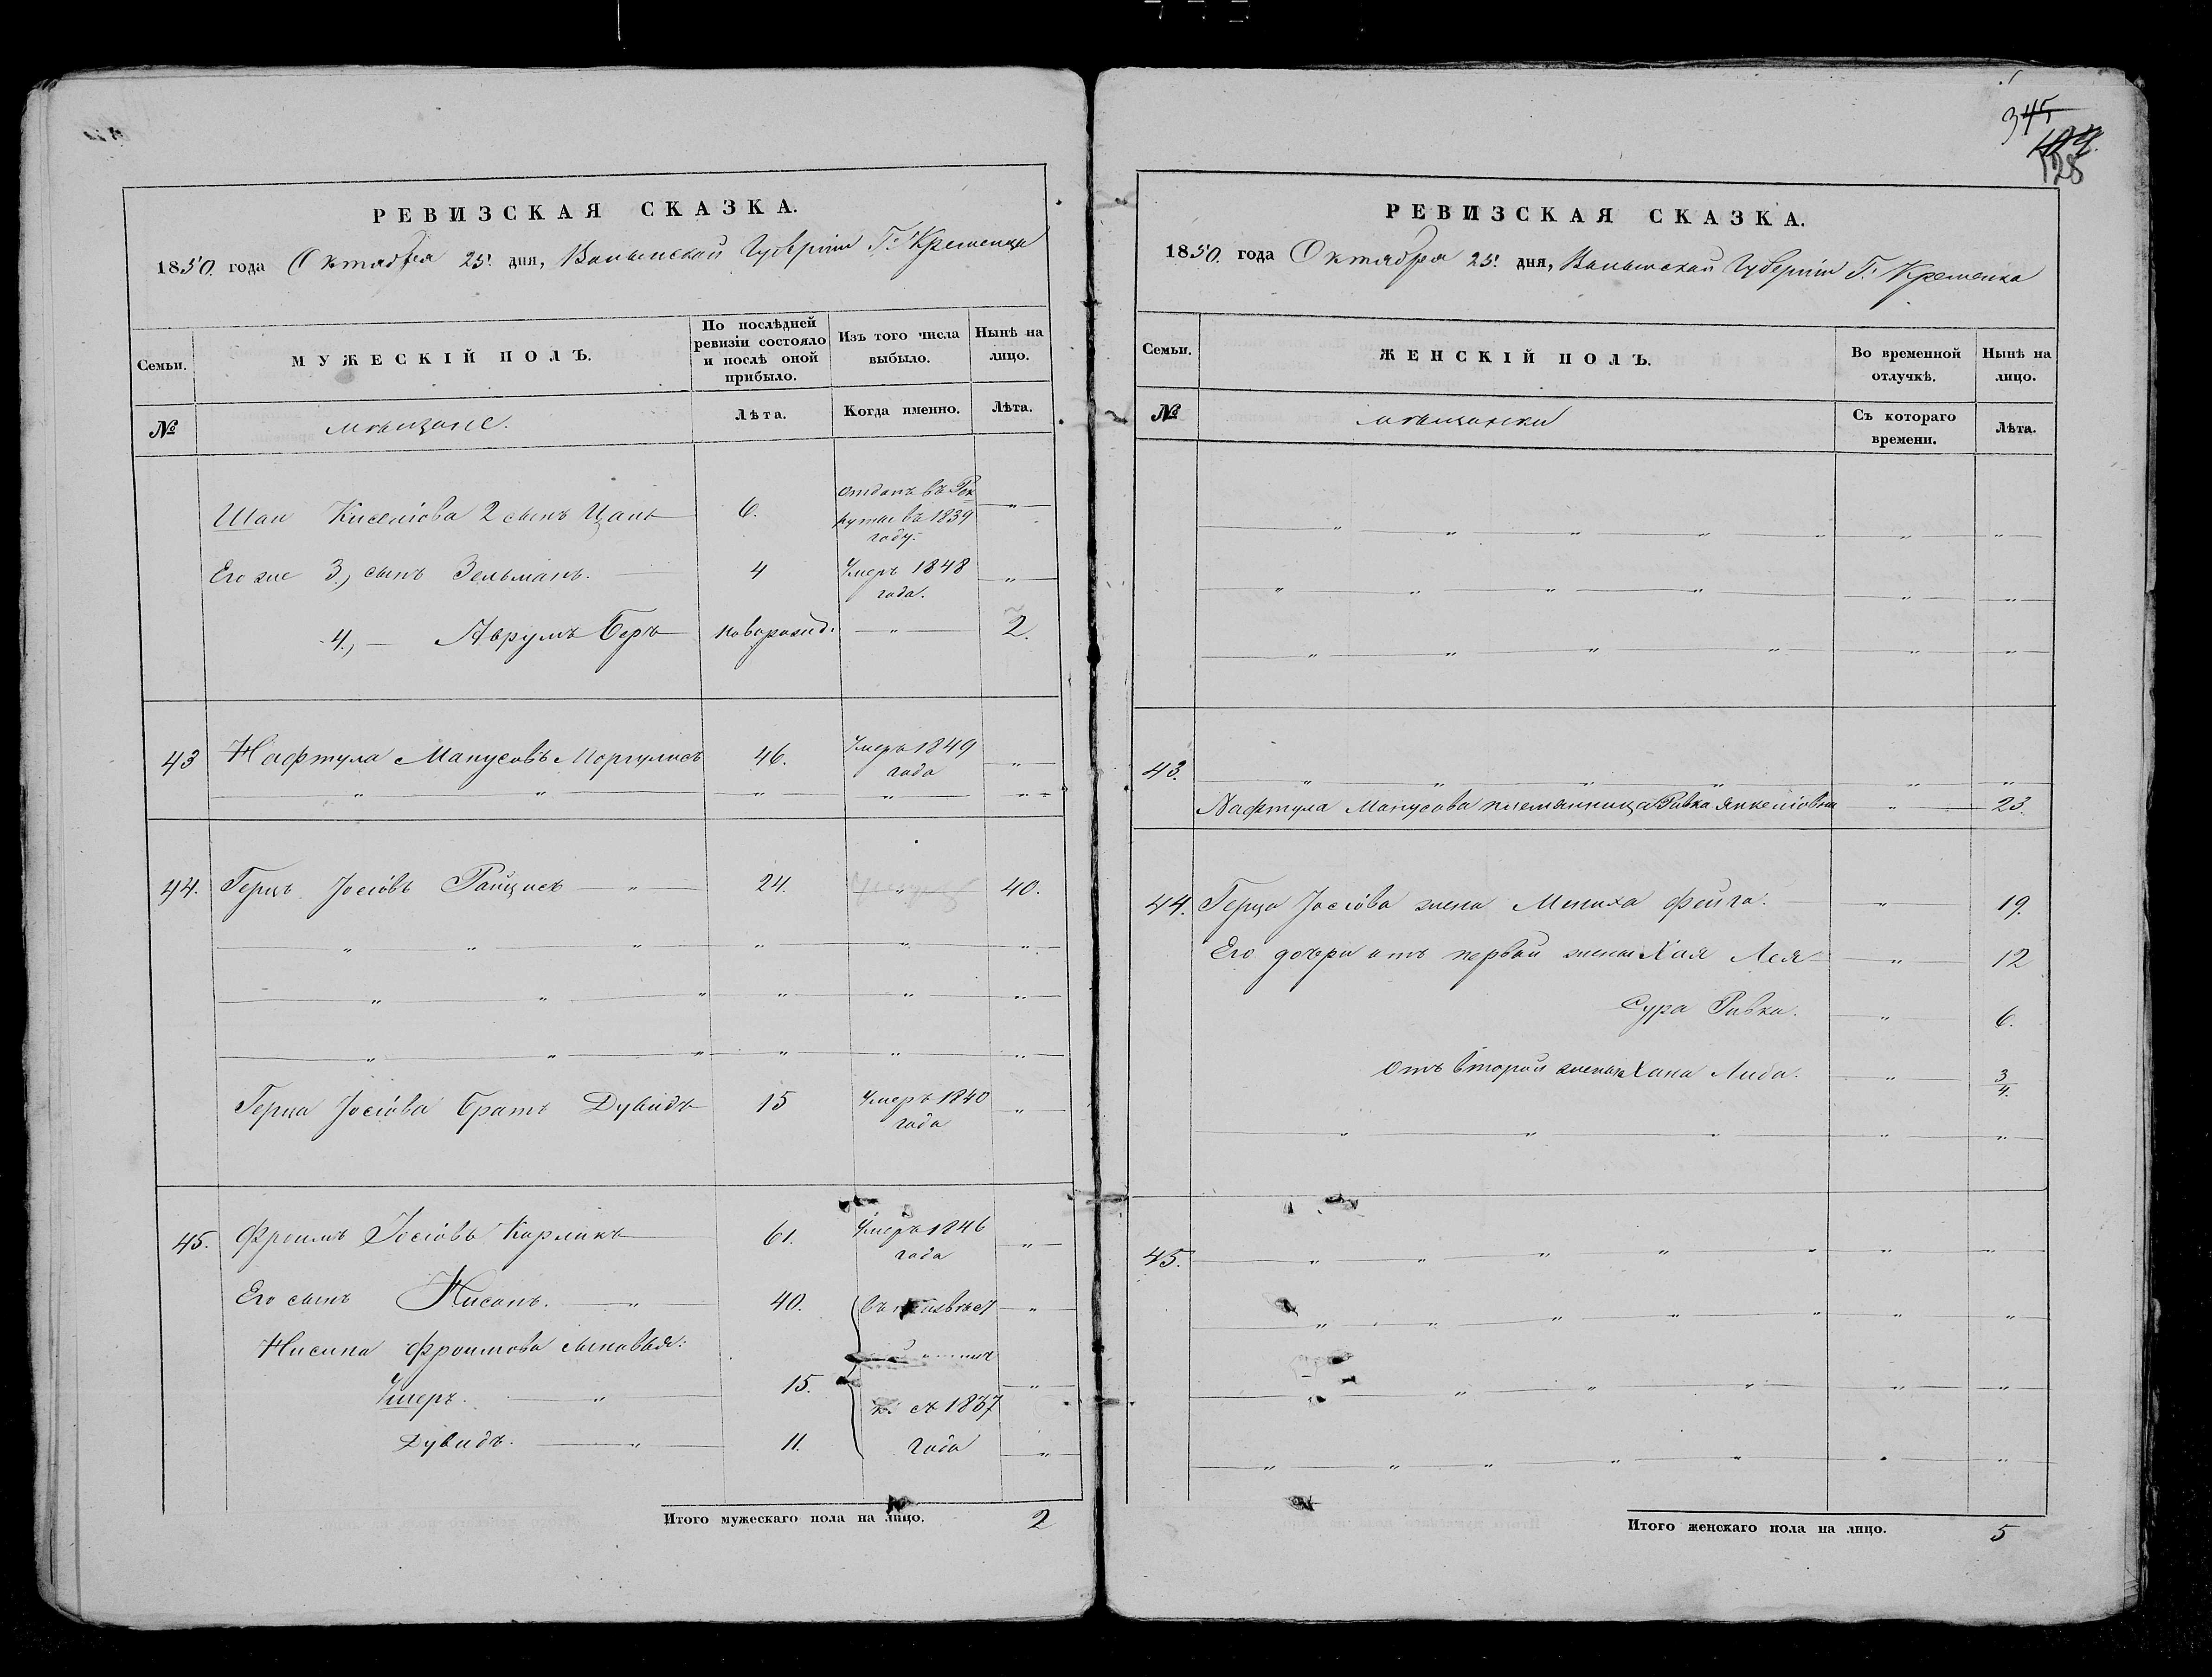 РЕВИЗСКАЯ СКАЗКА.
1850. года Октября 25. дня, Волынской Губерніи Г. Кременца
Семьи.
МУЖЕСКІЙ ПОЛЪ.
По послѣдней ревизіи состояло и послѣ оной прибыло.
Изъ того числа выбыло.
Нынѣ на лицо.
№
мѣщане.
Лѣта.
Когда именно.
Лѣта.
2 сынъ 6. отданъ въ Рек
руты въ 1839 "
году.
Его же 3, сынъ Зельманъ. 4 Умеръ 1848 "
года.
4, — Аврумъ Беръ новорожд. " 2.
43 Нафтула Манусовъ Моргулисъ 46. Умеръ 1849 "
года
" " " " "
44. Герцъ Іосіовъ " 24. " 40.
" " " " " "
" " " " " "
" " " " " "
Герца Іосіова братъ Дувидъ 15 Умеръ 1840 "
года
45. Фроимъ Іосіовъ Карликъ 61. Умеръ 1846 "
года
Его сынъ Нисонъ. " 40. "
Нисина Фроимова сыновья:
" 15. "
съ 1837
Дувидъ. " 11. года "
Итого мужескаго пола на лицо. 2
345
128
РЕВИЗСКАЯ СКАЗКА.
1850. года Октября 25. дня, Волынской Губерніи Г. Кременца
Семьи.
ЖЕНСКІЙ ПОЛЪ.
Во временной отлучкѣ.
Нынѣ на лицо.
№
мѣщанки
Съ котораго времени.
Лѣта.
" " " " " " "
" " " " " "
" " " " " "
43. " " " " " "
Нафтула Манусова племянница Ривка Янкеліовна " 23.
44. Герца Іосіова жена Мениха Фейга. " 19.
Его дочери отъ первой жены Хая Лея " 12
Сура Ривка. " 6.
отъ второй жены Хана " 3/4.
" " " " "
45. " " " " " " "
" " " " " " "
" " " " "
" " " " " " "
Итого женскаго пола на лицо. 5